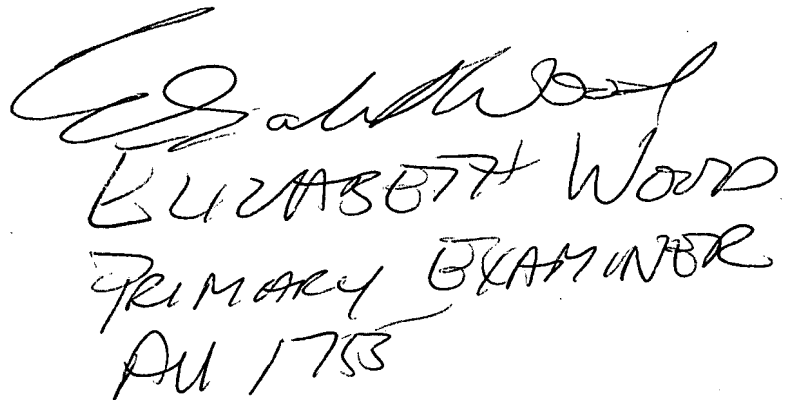 Elizabeth Wood
ELIZABETH WOOD
PRIMARY EXAMINER
AU 1753